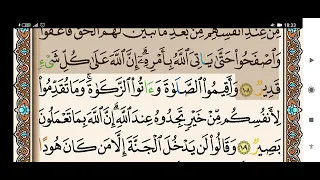 18:33
مِّنْ عِندِ أَنفُسِهِم مِّنۢ بَعْدِ مَا تَبَيَّنَ لَهُمُ ٱلْحَقُّ فَٱعْفُوا۟
وَٱصْفَحُوا۟ حَتَّىٰ يَأْتِىَ ٱللَّهُ بِأَمْرِهِۦٓ إِنَّ ٱللَّهَ عَلَىٰ كُلِّ شَىْءٍ
قَدِيرٌ ١٠٩ وَأَقِيمُوا۟ ٱلصَّلَوٰةَ وَءَاتُوا۟ ٱلزَّكَوٰةَ وَمَا تُقَدِّمُوا۟
لِأَنفُسِكُم مِّنْ خَيْرٍ تَجِدُوهُ عِندَ ٱللَّهِ إِنَّ ٱللَّهَ بِمَا تَعْمَلُونَ
بَصِيرٌ وَقَالُوا۟ لَن يَدْخُلَ ٱلْجَنَّةَ إِلَّا مَن كَانَ هُودًا